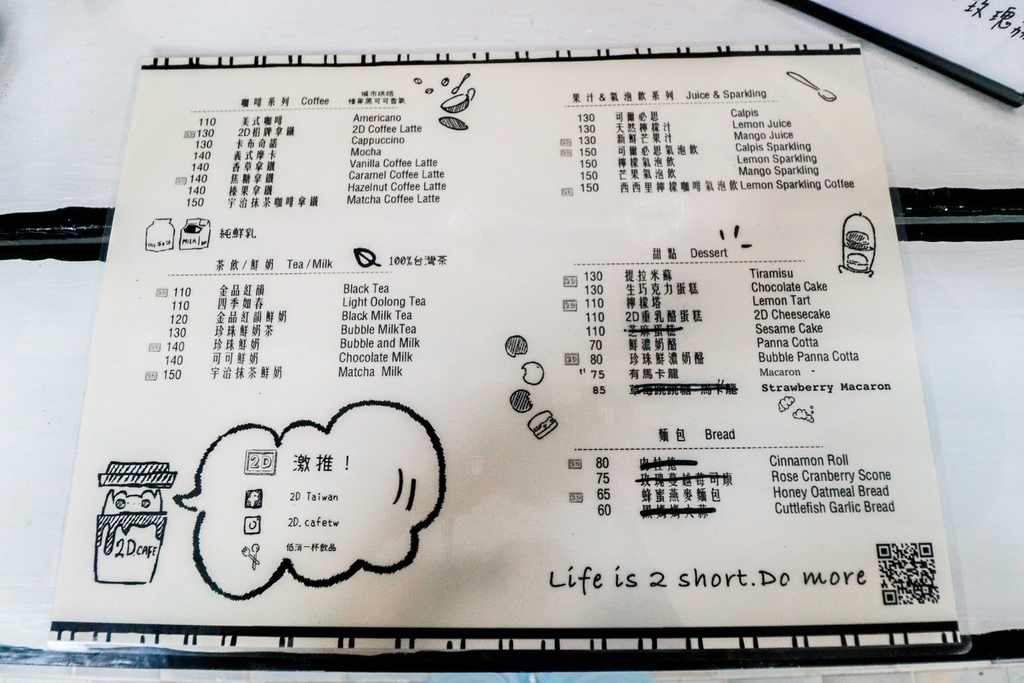 咖啡系列 Coffee 城市烘焙 榛果黑可可香氣
110 美式咖啡 Americano
2D 130 2D招牌拿鐵 2D Coffee Latte
130 卡布奇諾 Cappuccino
140 義式摩卡 Mocha
140 香草拿鐵 Vanilla Coffee Latte
2D 140 焦糖拿鐵 Caramel Coffee Latte
140 榛果拿鐵 Hazelnut Coffee Latte
150 宇治抹茶咖啡拿鐵 Matcha Coffee Latte
MILK 純鮮乳
茶飲/鮮奶 Tea/Milk 100%台灣茶
2D 110 金品紅韻 Black Tea
110 四季如春 Light Oolong Tea
120 金品紅韻鮮奶 Black Milk Tea
130 珍珠鮮奶茶 Bubble MilkTea
2D 140 珍珠鮮奶 Bubble and Milk
140 可可鮮奶 Chocolate Milk
2D 150 宇治抹茶鮮奶 Matcha Milk
2D 激推!
2D Taiwan
2D.cafetw
低消一杯飲品
2D CAFE
果汁&氣泡飲系列 Juice & Sparkling
130 可爾必思 Calpis
2D 130 天然檸檬汁 Lemon Juice
130 新鮮芒果汁 Mango Juice
2D 150 可爾必思氣泡飲 Calpis Sparkling
150 檸檬氣泡飲 Lemon Sparkling
150 芒果氣泡飲 Mango Sparkling
2D 150 西西里檸檬咖啡氣泡飲 Lemon Sparkling Coffee
甜點 Dessert
2D 130 提拉米蘇 Tiramisu
130 生巧克力蛋糕 Chocolate Cake
2D 110 檸檬塔 Lemon Tart
110 2D重乳酪蛋糕 2D Cheesecake
110 芝麻蛋糕 Sesame Cake
70 鮮濃奶酪 Panna Cotta
2D 80 珍珠鮮奶酪 Bubble Panna Cotta
75 有馬卡龍 Macaron
85 草莓跳跳糖 馬卡龍 Strawberry Macaron
麵包 Bread
2D 80 肉桂捲 Cinnamon Roll
75 玫瑰蔓越莓司康 Rose Cranberry Scone
2D 65 蜂蜜燕麥麵包 Honey Oatmeal Bread
60 Cuttlefish Garlic Bread
Life is 2 short.Do more
玫瑰